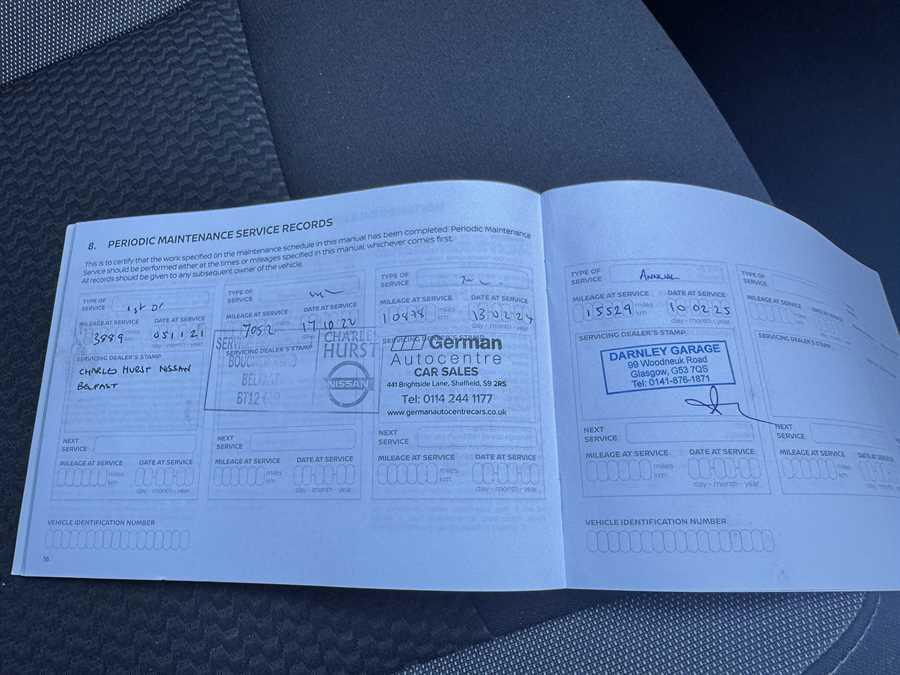 8. PERIODIC MAINTENANCE SERVICE RECORDS
This is to certify that the work specified on the maintenance schedule in this manual has been completed. Periodic Maintenance
Service should be performed either at the times or mileages specified in this manual, whichever comes first.
All records should be given to any subsequent owner of the vehicle.
TYPE OF
SERVICE
1st
MILEAGE AT SERVICE DATE AT SERVICE
3889 miles km 051121
day - month - year
SERVICING DEALER'S STAMP
CHARLES HURST NISSAN
BELFAST
NEXT
SERVICE
MILEAGE AT SERVICE DATE AT SERVICE
miles
km
day - month - year
TYPE OF
SERVICE
MILEAGE AT SERVICE DATE AT SERVICE
7052 miles 17.10.22
SERVICING DEALER'S STAMP
CHARLES
HURST
BELFAST
BT12
NISSAN
NEXT
SERVICE
MILEAGE AT SERVICE DATE AT SERVICE
miles
km
day - month - year
TYPE OF
SERVICE
MILEAGE AT SERVICE DATE AT SERVICE
10478 miles km 130224
day - month - year
German
Autocentre
CAR SALES
441 Brightside Lane, Sheffield, S9 2RS
Tel: 0114 244 1177
www.germanautocentrecars.co.uk
NEXT
SERVICE
MILEAGE AT SERVICE DATE AT SERVICE
miles
km
day - month - year
TYPE OF
SERVICE
ANNUAL
MILEAGE AT SERVICE DATE AT SERVICE
15529 miles km 100225
day - month - year
SERVICING DEALER'S STAMP
DARNLEY GARAGE
99 Woodneuk Road
Glasgow, G53 7QS
Tel: 0141-876-1871
NEXT
SERVICE
MILEAGE AT SERVICE DATE AT SERVICE
miles
km
day - month - year
TYPE OF
SERVICE
MILEAGE AT SERVICE
miles
SERVICING DEALER'S STAMP
NEXT
SERVICE
MILEAGE AT SERVICE DATE AT SERVICE
miles
km
day - month - year
VEHICLE IDENTIFICATION NUMBER
16
VEHICLE IDENTIFICATION NUMBER